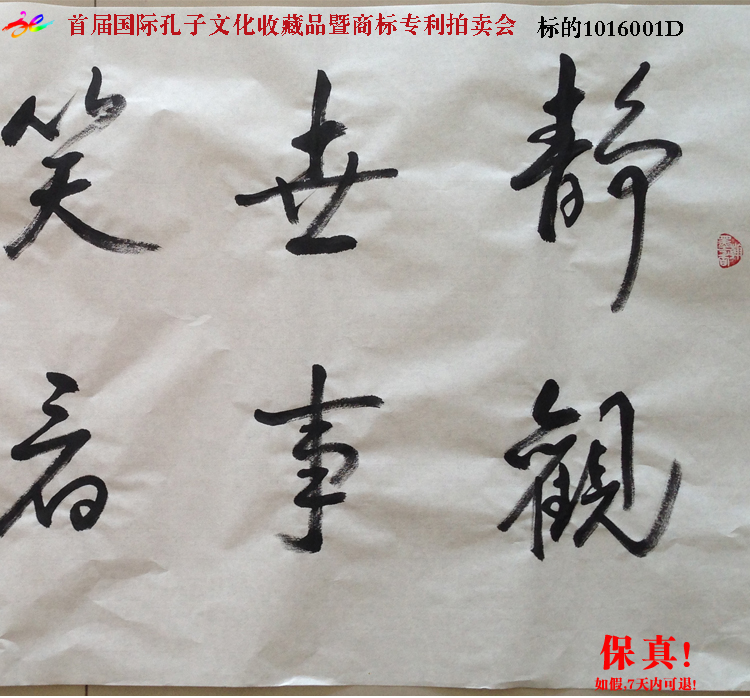 首届国际孔子文化收藏品暨商标专利拍卖会 标的1016001D
靜觀
世事
笑看
保真!
如假,7天内可退!